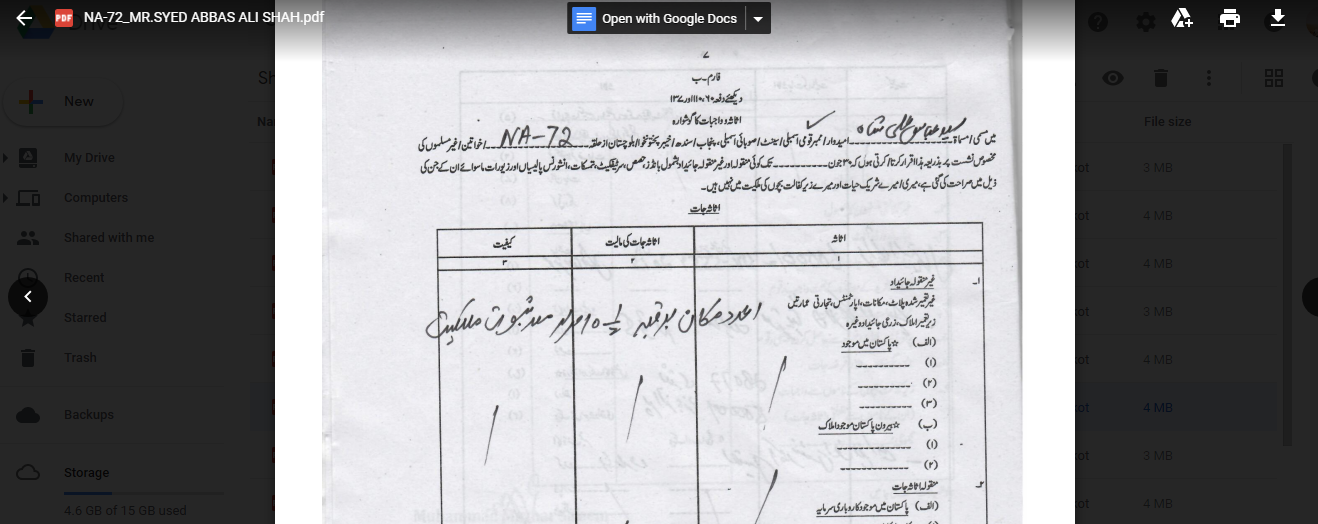 NA-72_MR.SYED ABBAS ALI SHAH.pdf
Open with Google Docs
New
My Drive
Computers
Shared with me
Recent
Starred
Trash
Backups
Storage
4.6 GB of 15 GB used
File size
3 MB
4 MB
4 MB
4 MB
3 MB
3 MB
4 MB
3 MB
4 MB
۷
فارم۔ب
دیکھئے دفعہ ۶۰، ۱۱۰ اور ۱۳۷
اثاثہ و واجبات کا گوشوارہ
میں مسمی/مسماۃ سید عباس علی شاہ امیدوار/ممبر قومی اسمبلی/سینٹ/صوبائی اسمبلی، پنجاب/سندھ/خیبر پختونخوا/بلوچستان از حلقہ NA-72 /خواتین/غیر مسلموں کی
مخصوص نشست پر بذریعہ ہذا اقرار کرتا/کرتی ہوں کہ ۳۰ جون ---------- تک کوئی منقولہ اور غیر منقولہ جائیداد بشمول بانڈز، حصص، سرٹیفکیٹ، تمسکات، انشورنس پالیسیاں اور زیورات، ماسوائے ان کے جن کی
ذیل میں صراحت کی گئی ہے، میری/میرے شریک حیات اور میرے زیر کفالت بچوں کی ملکیت میں نہیں ہیں۔
اثاثہ جات
اثاثہ اثاثہ جات کی مالیت کیفیت
۱ ۲ ۳
۱۔ غیر منقولہ جائیداد
غیر تعمیر شدہ پلاٹ، مکانات، اپارٹمنٹس، تجارتی عمارتیں
زیر تعمیر املاک، زرعی جائیداد وغیرہ
عدد مکان برقبہ
(الف) ☆پاکستان میں موجود
(۱) ----------
(۲) ----------
(۳) ----------
(ب) ☆بیرون پاکستان موجود املاک
(۱) ----------
(۲) ----------
۲۔ منقولہ اثاثہ جات
(الف) پاکستان میں موجود کاروباری سرمایہ